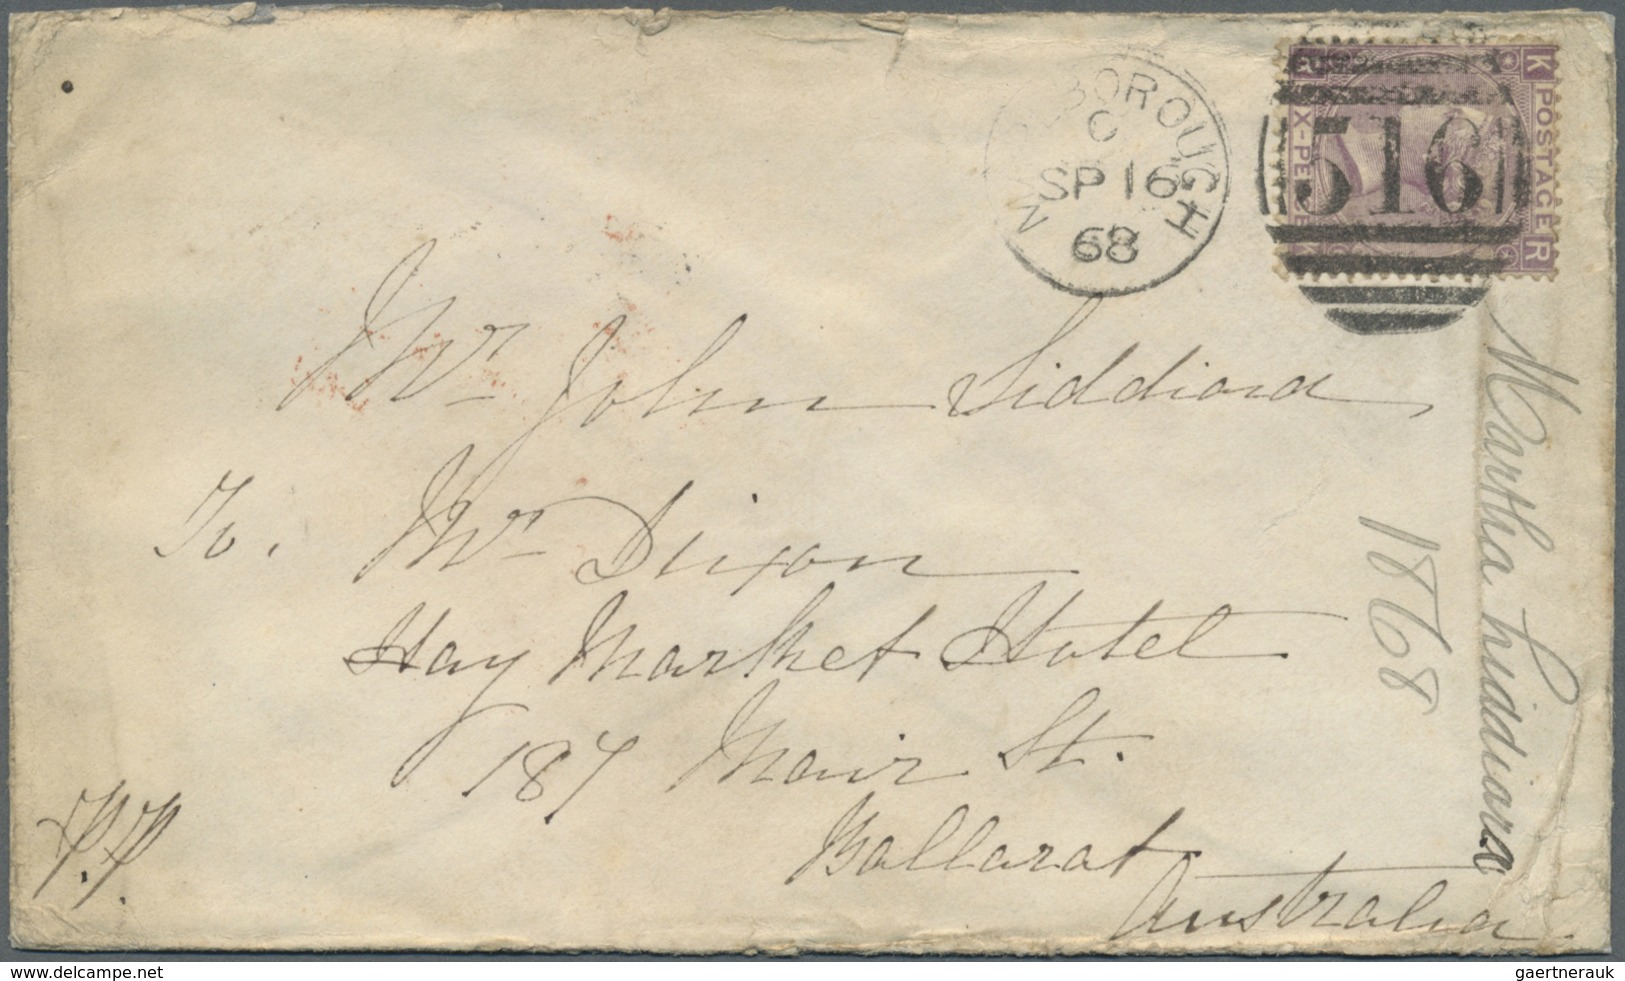 BOROUGH
C
SP 16
68
K
POSTAGE
R
516
Mr John Siddiard
To. Mr Dixon
Hay Market Hotel
187 Mair St.
Ballarat
Australia
P.P.
Martha Liddiard
1868
gaertnerauk